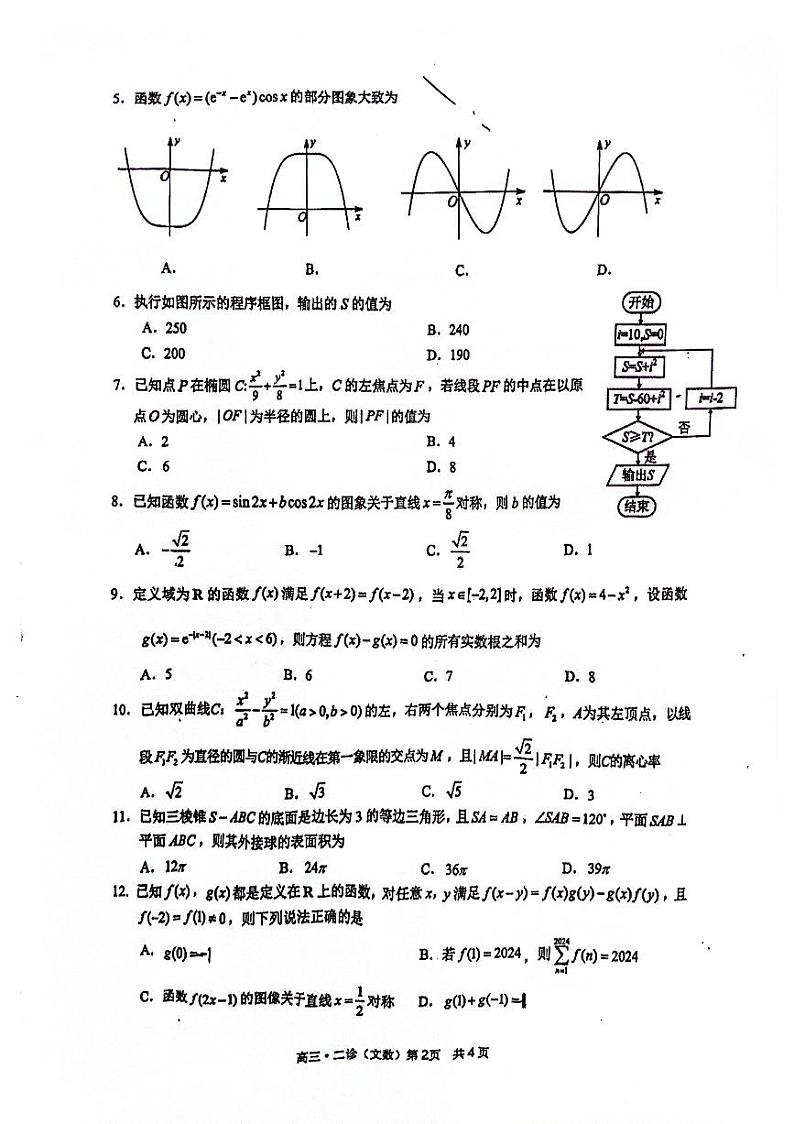 5. 函数 f(x)=(e⁻ˣ−eˣ)cosx 的部分图象大致为
y
O
x
y
O
x
y
O
x
y
O
x
A.
B.
C.
D.
6. 执行如图所示的程序框图，输出的 S 的值为
A. 250
B. 240
C. 200
D. 190
开始
i=10,S=0
S=S+i²
T=S-60+i²
i=i-2
S≥T?
否
是
输出S
结束
7. 已知点 P 在椭圆 C: x²/9+y²/8=1上，C 的左焦点为 F，若线段 PF 的中点在以原
点 O 为圆心，|OF| 为半径的圆上，则|PF|的值为
A. 2
B. 4
C. 6
D. 8
8. 已知函数 f(x)=sin2x+bcos2x 的图象关于直线 x=π/8 对称，则 b 的值为
A. −√2/2
B. −1
C. √2/2
D. 1
9. 定义域为 R 的函数 f(x) 满足 f(x+2)=f(x−2)，当 x∈[−2,2]时，函数 f(x)=4−x²，设函数
g(x)=e^(−|x−2|)(−2<x<6)，则方程 f(x)−g(x)=0 的所有实数根之和为
A. 5
B. 6
C. 7
D. 8
10. 已知双曲线C: x²/a²−y²/b²=1(a>0,b>0)的左，右两个焦点分别为F₁，F₂，A为其左顶点，以线
段F₁F₂为直径的圆与C的渐近线在第一象限的交点为M，且|MA|=√2/2|F₁F₂|，则C的离心率
A. √2
B. √3
C. √5
D. 3
11. 已知三棱锥 S−ABC 的底面是边长为 3 的等边三角形，且 SA=AB，∠SAB=120°，平面 SAB⊥
平面 ABC，则其外接球的表面积为
A. 12π
B. 24π
C. 36π
D. 39π
12. 已知 f(x)，g(x)都是定义在 R 上的函数，对任意 x，y 满足 f(x−y)=f(x)g(y)−g(x)f(y)，且
f(−2)=f(1)≠0，则下列说法正确的是
A. g(0)=−1
B. 若 f(1)=2024，则 ∑ₙ₌₁²⁰²⁴ f(n)=2024
C. 函数 f(2x−1) 的图像关于直线 x=1/2 对称
D. g(1)+g(−1)=1
高三·二诊（文数）第2页 共4页